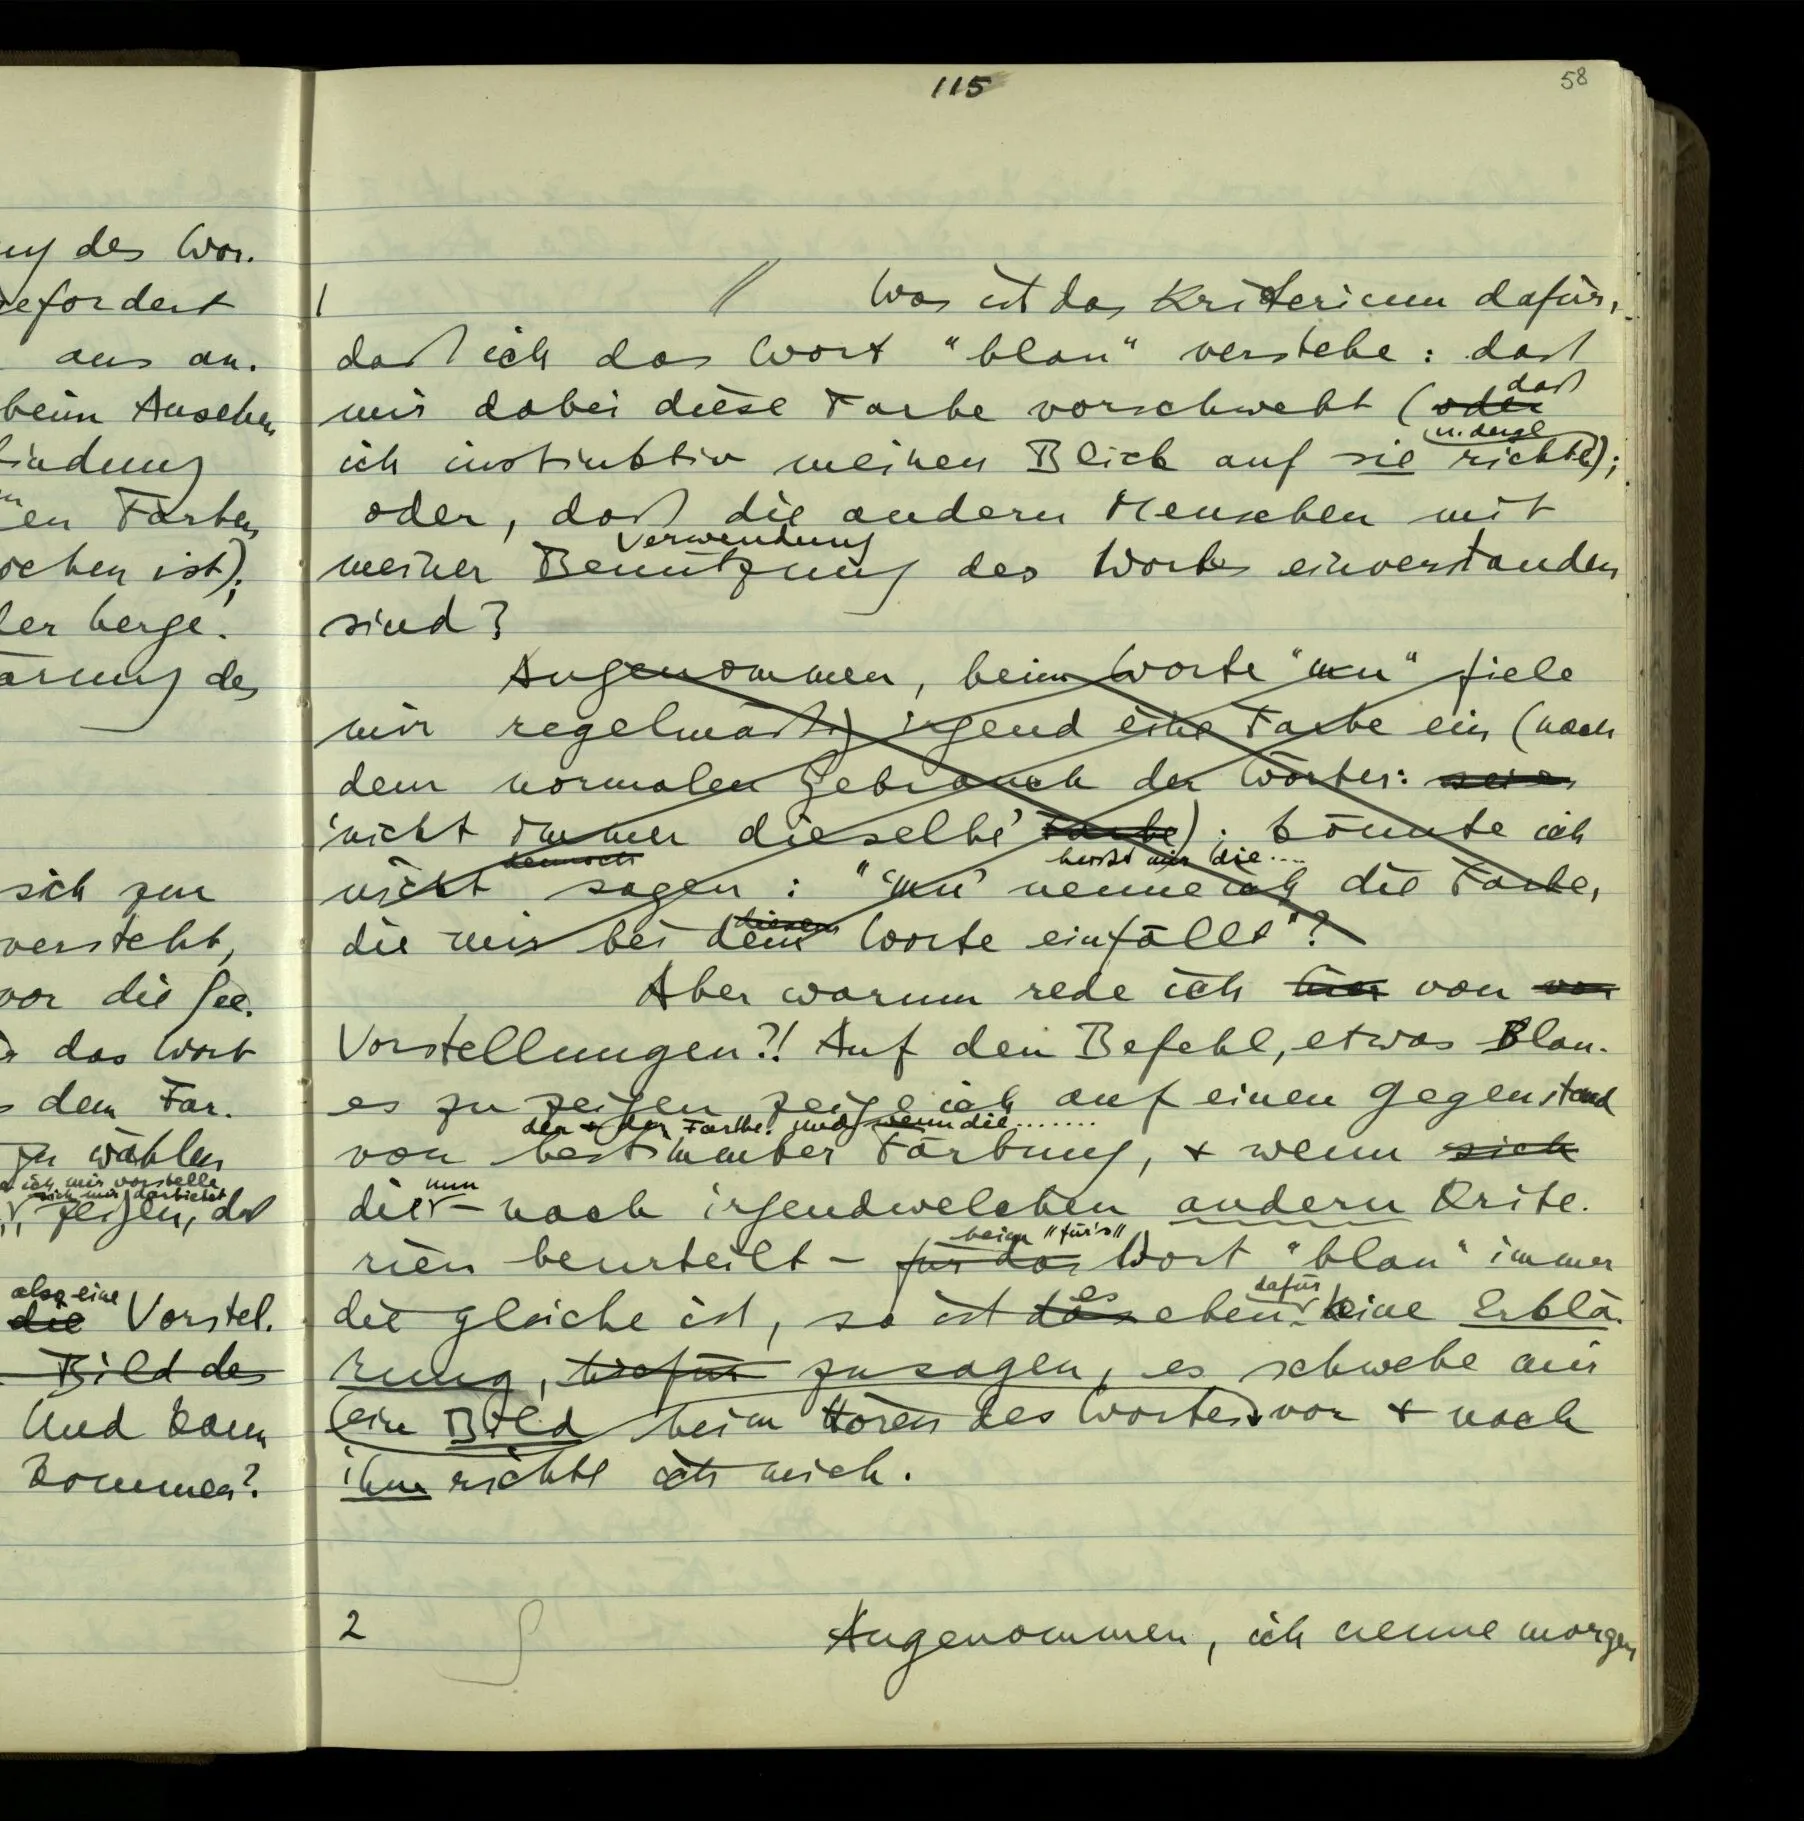 115
58
ung des Wor-
gefordert
aus an-
beim Ansehen
bindung
en Farben
ochen ist);
der herge-
ärung des
sich zur
versteht,
vor die See-
das Wort
dem Far-
zu wählen
ich mir vorstelle
sich mir darbietet
zeigen, daß
also eine
die Vorstel-
Bild des
Und kann
kommen?
1 // Was ist das Kriterium dafür,
daß ich das Wort "blau" verstehe: daß
daß
mir dabei diese Farbe vorschwebt (oder
u. dergl
ich instinktiv meinen Blick auf sie richte);
oder, daß die andern Menschen mit
Verwendung
meiner Benützung des Worts einverstanden
sind?
Angenommen, beim Worte "mu" fiele
mir regelmäßig irgend eine Farbe ein (nach
dem normalen Gebrauch der Wörter:
'nicht immer dieselbe' Farbe): könnte ich
dennoch heißt mir die....
nicht sagen: "'mu' nenne ich die Farbe,
diesem
die mir bei dem Worte einfällt"?
Aber warum rede ich hier von von
Vorstellungen?! Auf den Befehl, etwas Blau-
es zu zeigen zeige ich auf einen Gegenstand
der Farbe. und wenn die.......
von bestimmter Färbung, + wenn sich
nun
die – nach irgendwelchen andern Krite-
beim "für's"
rien beurteilt – für das Wort "blau" immer
es dafür
die gleiche ist, so ist das eben keine Erklä-
rung, hiefür zusagen, es schwebe mir
ein Bild beim Hören des Wortes vor + nach
ihm richte ich mich.
2 Angenommen, ich nenne morgen